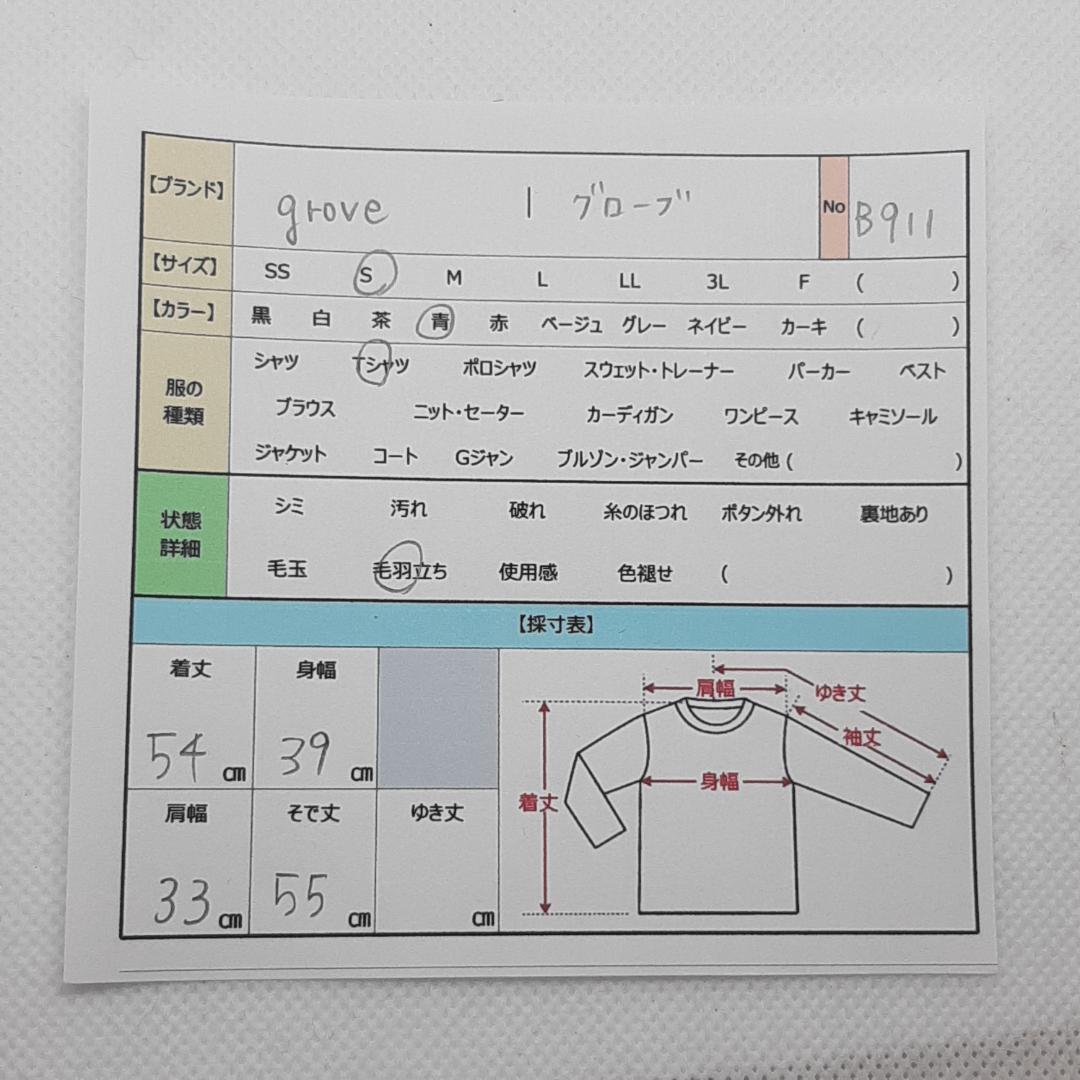 【ブランド】 grove | グローブ No B911
【サイズ】 SS S M L LL 3L F ( )
【カラー】 黒 白 茶 青 赤 ベージュ グレー ネイビー カーキ ( )
服の種類 シャツ Tシャツ ポロシャツ スウェット・トレーナー パーカー ベスト
ブラウス ニット・セーター カーディガン ワンピース キャミソール
ジャケット コート Gジャン ブルゾン・ジャンパー その他 ( )
状態詳細 シミ 汚れ 破れ 糸のほつれ ボタン外れ 裏地あり
毛玉 毛羽立ち 使用感 色褪せ ( )
【採寸表】
着丈 身幅
54 cm 39 cm
肩幅 そで丈 ゆき丈
33 cm 55 cm cm
肩幅 ゆき丈
袖丈
身幅
着丈